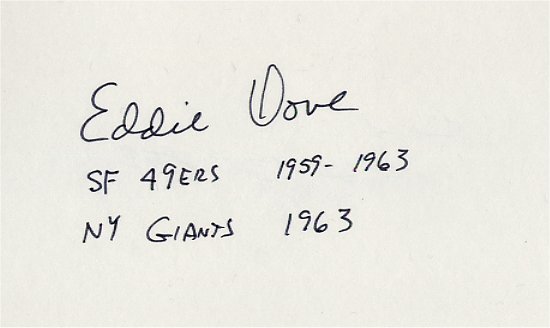 Eddie Dove
SF 49ERS 1959-1963
NY GIANTS 1963